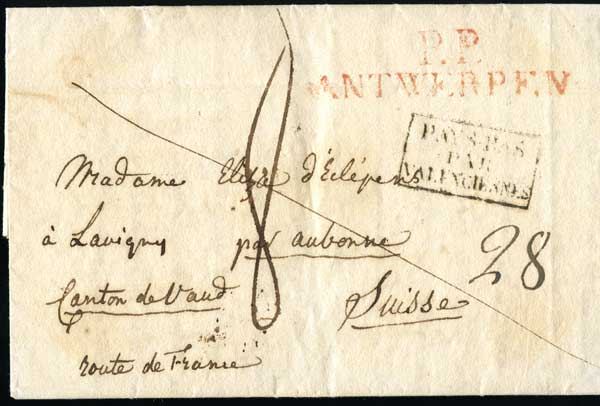 P.P.
ANTWERPEN
PAYS-BAS
PAR
VALENCIENNES
Madame Eliza d'Eclépens
à Lavigny par aubonne
Canton de Vaud Suisse
route de France
8
28